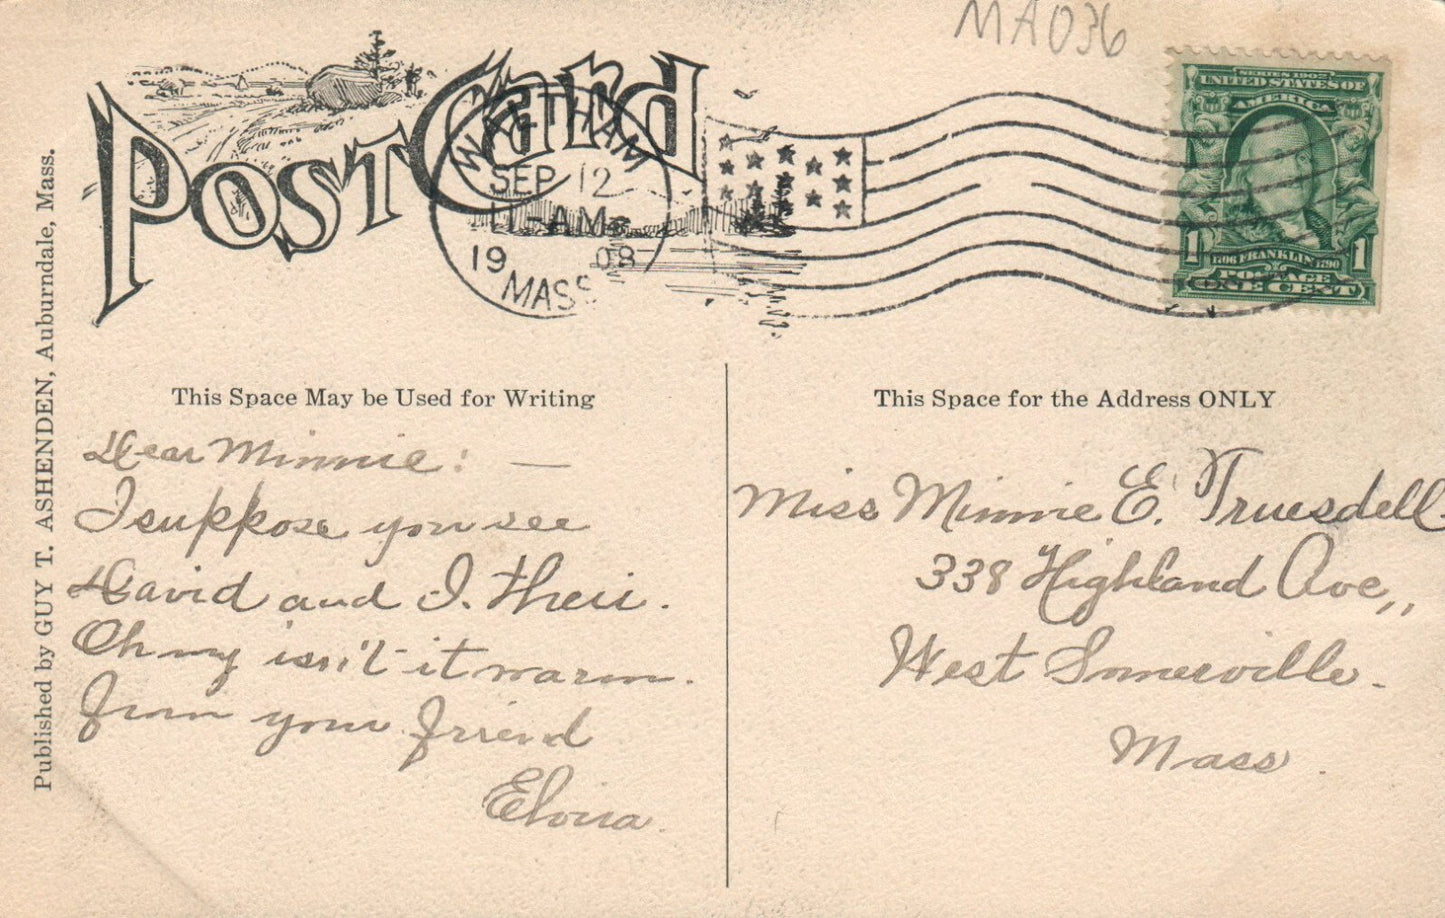 MA036
POST CARD
WALTHAM
SEP 12
11-AM
1908
MASS
SERIES 1902
UNITED STATES OF
AMERICA
1706 FRANKLIN 1790
1 POSTAGE 1
ONE CENT
Published by GUY T. ASHENDEN, Auburndale, Mass.
This Space May be Used for Writing
Dear Minnie: —
I suppose you see
David and I. their.
Oh my isn't it warm.
From your friend
This Space for the Address ONLY
Miss Minnie E. Truesdell
338 Highland Ave,,
West Somerville.
Mass.